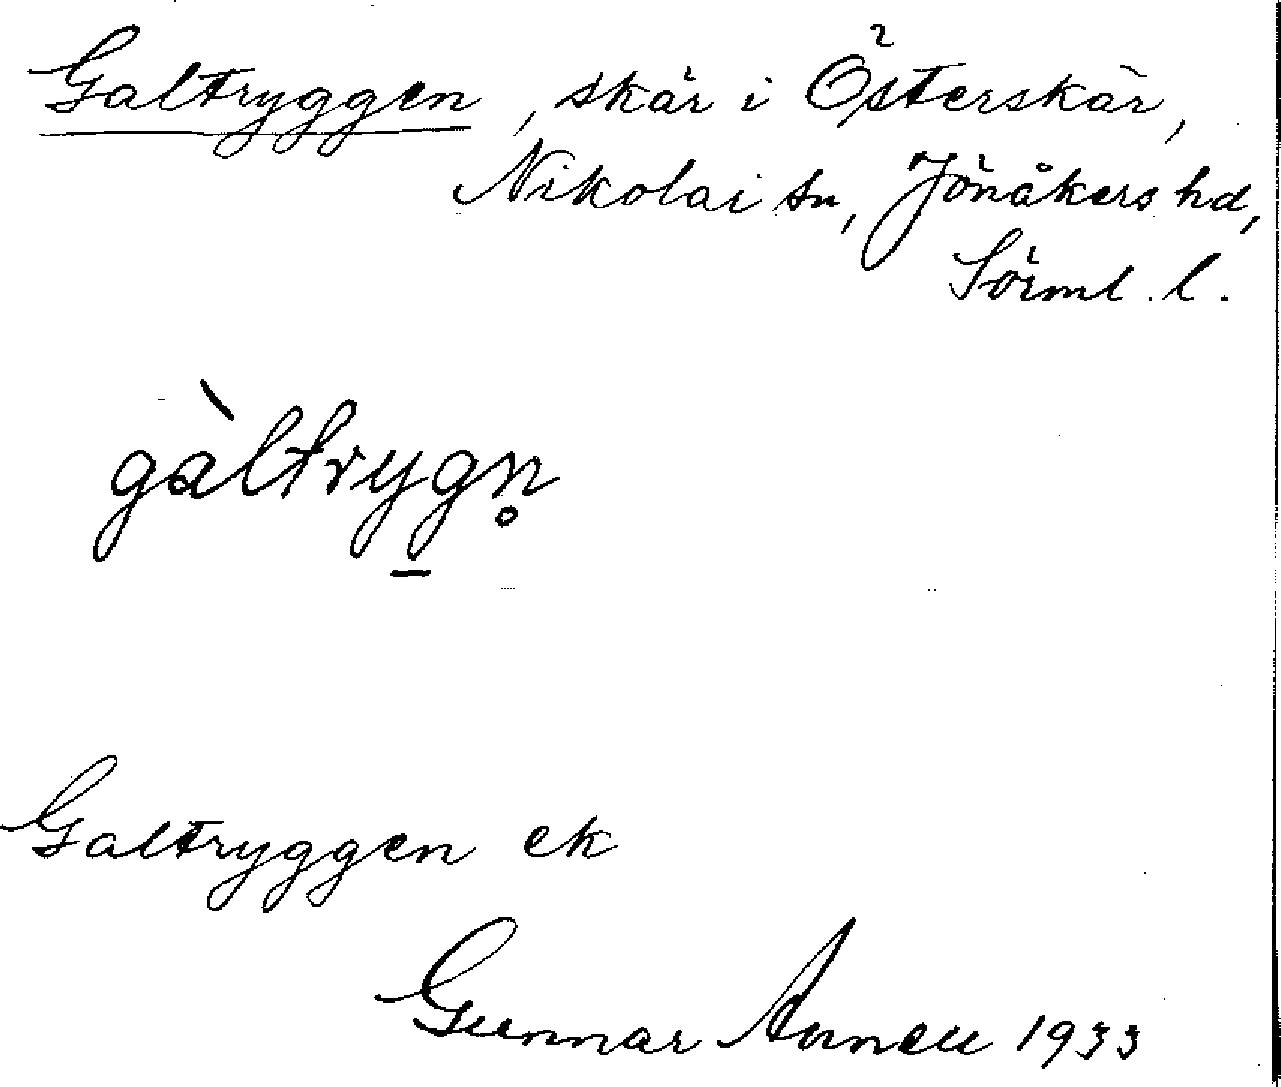 Galtryggen, skär i Österskär,
Nikolai sn, Jönåkers hd,
Sörml. l.
gàltrygn̥
Galtryggen ek
Gunnar Annell 1933